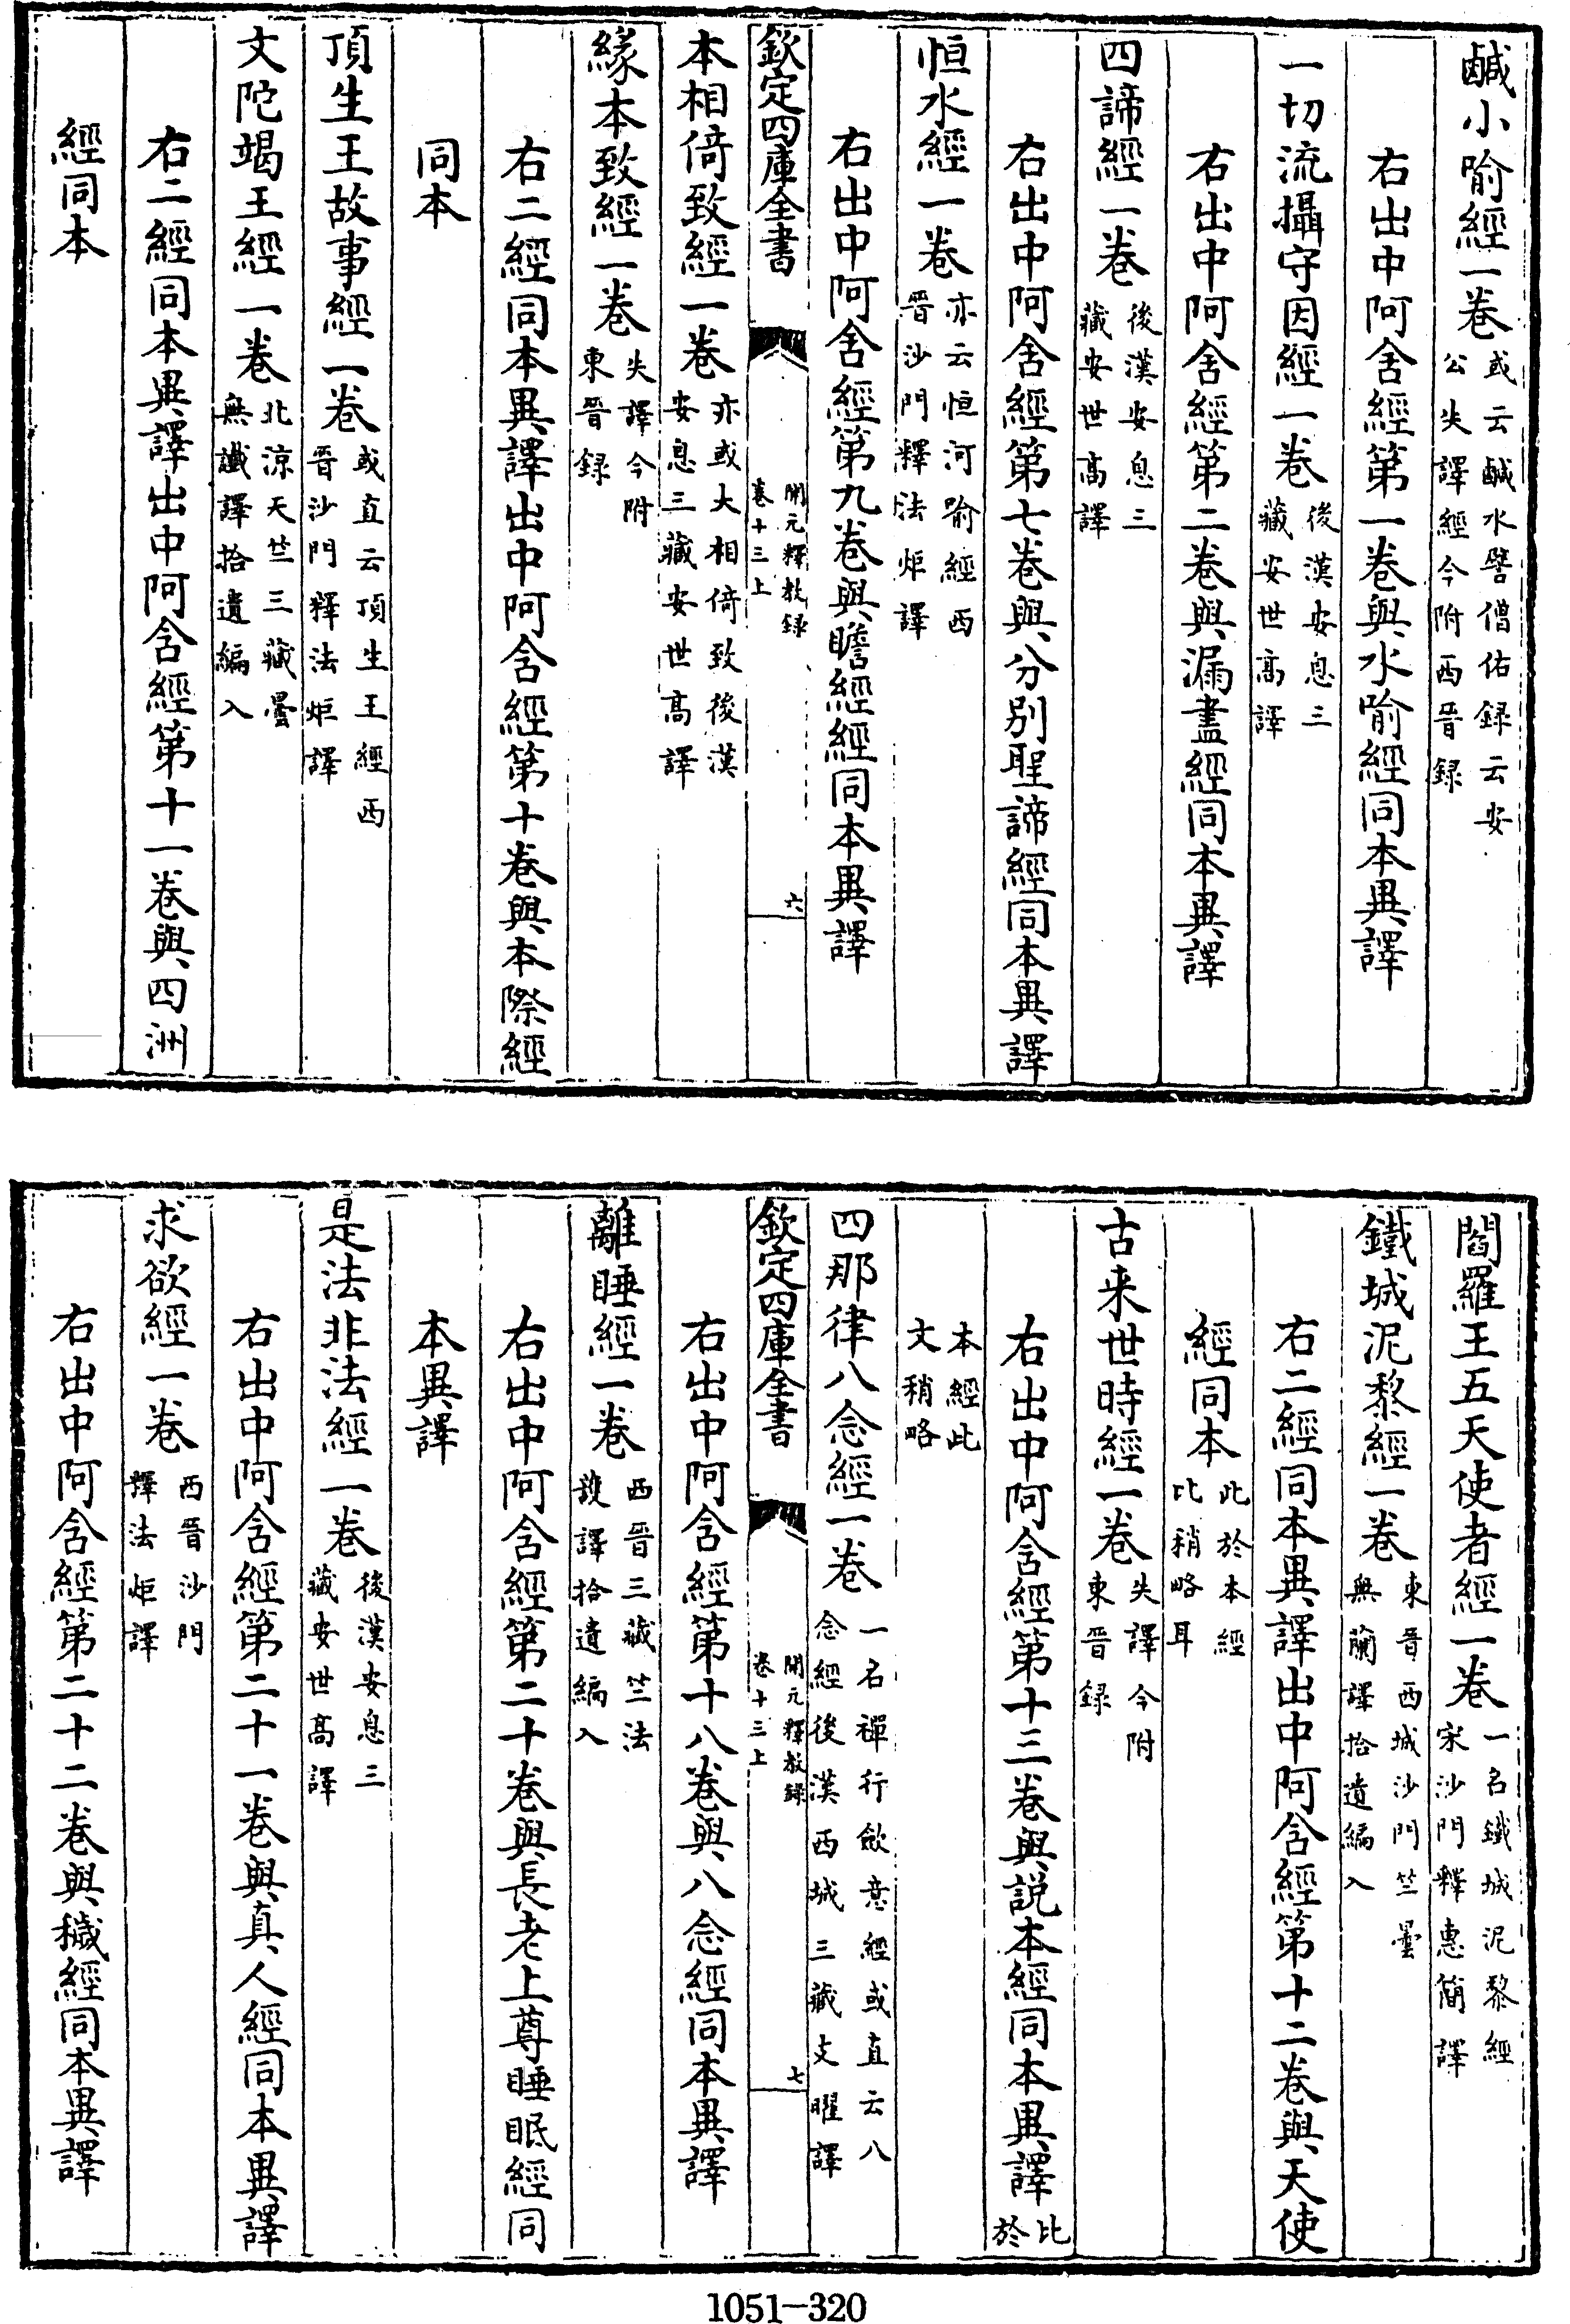 鹹小喻經一卷或云鹹水譬僧佑録云安公失譯經今附西晉録
右出中阿含經第一卷與水喻經同本異譯
一切流攝守因經一卷後漢安息三藏安世高譯
右出中阿含經第二卷與漏盡經同本異譯
四諦經一卷後漢安息三藏安世高譯
右出中阿含經第七卷與分别聖諦經同本異譯
恒水經一卷亦云恒河喻經西晉沙門釋法炬譯
右出中阿含經第九卷與瞻經經同本異譯
欽定四庫全書 開元釋教録卷十三上 六
本相倚致經一卷亦或大相倚致後漢安息三藏安世高譯
緣本致經一卷失譯今附東晉録
右二經同本異譯出中阿含經第十卷與本際經
同本
頂生王故事經一卷或直云頂生王經西晉沙門釋法炬譯
文陀竭王經一卷北涼天竺三藏曇無讖譯拾遺編入
右二經同本異譯出中阿含經第十一卷與四洲
經同本
閻羅王五天使者經一卷一名鐵城泥黎經宋沙門釋惠簡譯
鐵城泥黎經一卷東晉西城沙門竺曇無蘭譯拾遺編入
右二經同本異譯出中阿含經第十二卷與天使
經同本此於本經比稍略耳
古来世時經一卷失譯今附東晉録
右出中阿含經第十三卷與説本經同本異譯比於
本經此文稍略
四那律八念經一卷一名禪行歛意經或直云八念經後漢西城三藏支曜譯
欽定四庫全書 開元釋教録卷十三上 七
右出中阿含經第十八卷與八念經同本異譯
離睡經一卷西晉三藏竺法護譯拾遺編入
右出中阿含經第二十卷與長老上尊睡眠經同
本異譯
是法非法經一卷後漢安息三藏安世高譯
右出中阿含經第二十一卷與真人經同本異譯
求欲經一卷西晉沙門釋法炬譯
右出中阿含經第二十二卷與穢經同本異譯
1051-320